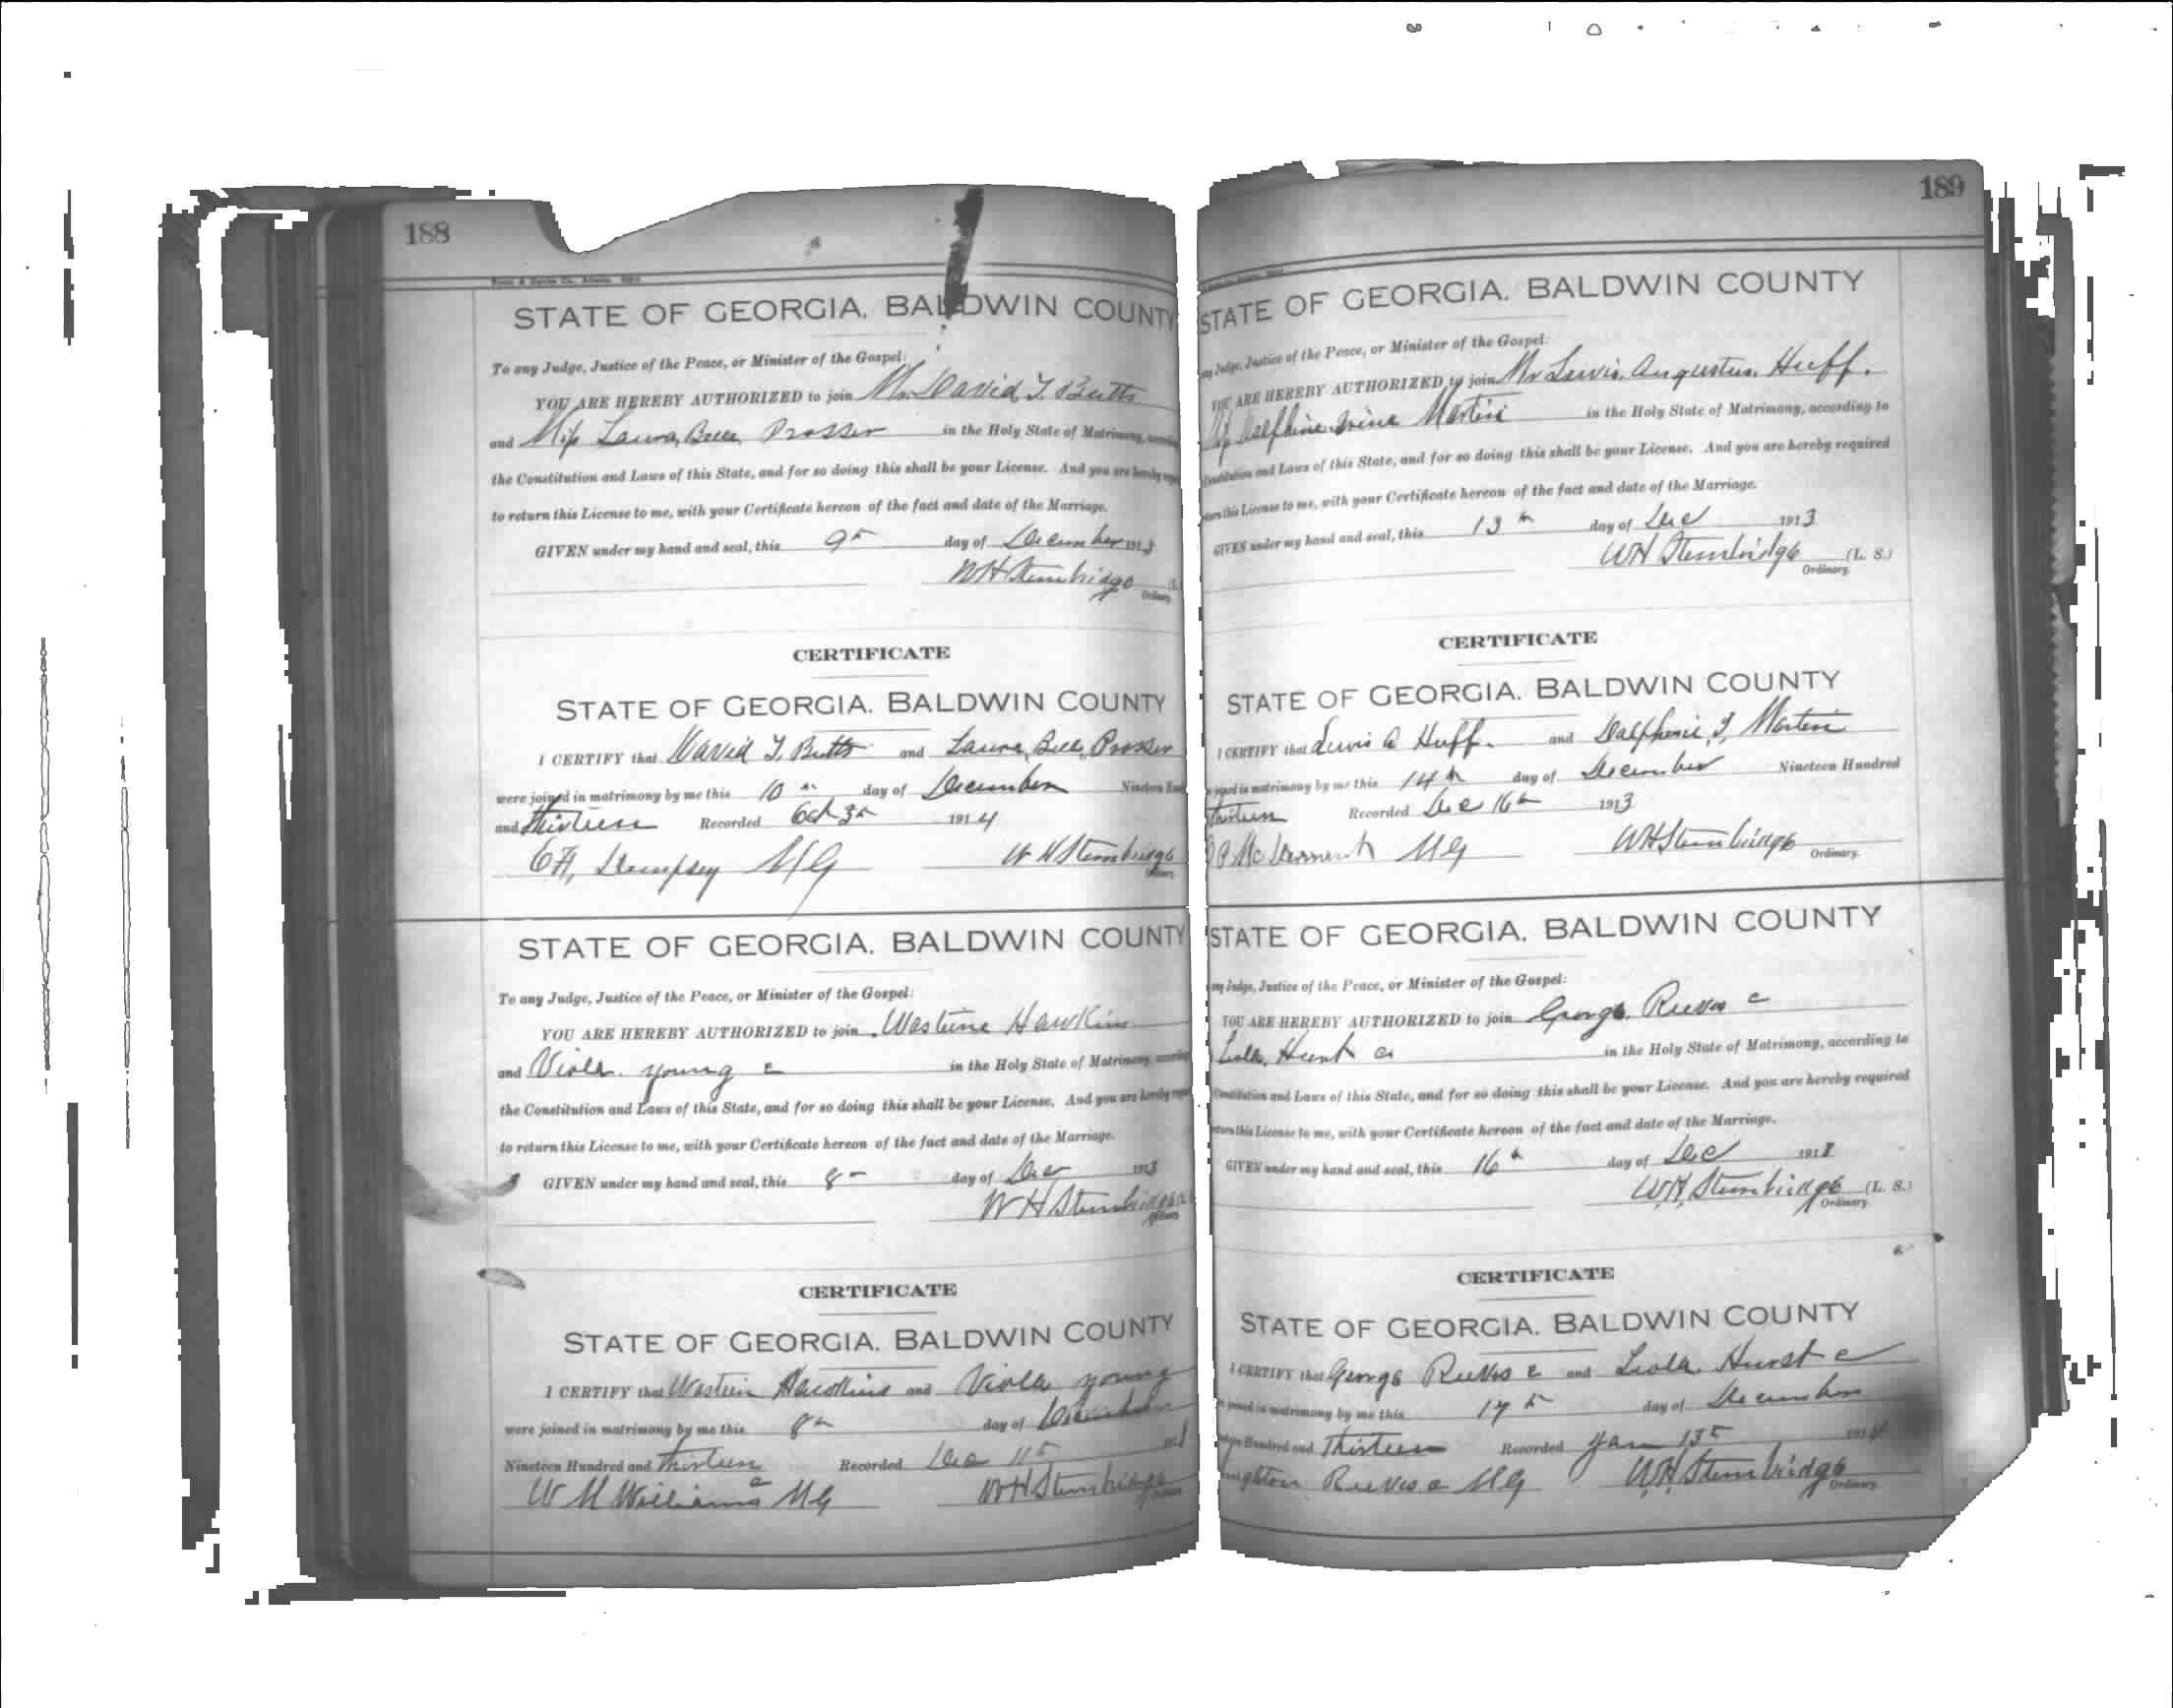 188
STATE OF GEORGIA. BALDWIN COUNTY
To any Judge, Justice of the Peace, or Minister of the Gospel:
YOU ARE HEREBY AUTHORIZED to join Mr. David T. Butts
and Miss Laura Bell Prosser in the Holy State of Matrimony,
the Constitution and Laws of this State, and for so doing this shall be your License. And you are hereby
to return this License to me, with your Certificate hereon of the fact and date of the Marriage.
GIVEN under my hand and seal, this 9th day of December 1913
W H Stembridge
Ordinary
CERTIFICATE
STATE OF GEORGIA. BALDWIN COUNTY
I CERTIFY that David T. Butts and Laura Bell Prosser
were joined in matrimony by me this 10th day of December Nineteen
and thirteen Recorded Oct 3rd 1914
Dempsey MG W H Stembridge
Ordinary
STATE OF GEORGIA. BALDWIN COUNTY
To any Judge, Justice of the Peace, or Minister of the Gospel:
YOU ARE HEREBY AUTHORIZED to join Hawkins
and Viola young c in the Holy State of Matrimony,
the Constitution and Laws of this State, and for so doing this shall be your License. And you are hereby
to return this License to me, with your Certificate hereon of the fact and date of the Marriage.
GIVEN under my hand and seal, this 8 day of Dec 1913
W H Stembridge
CERTIFICATE
STATE OF GEORGIA. BALDWIN COUNTY
I CERTIFY that Hawkins and Viola young
were joined in matrimony by me this 8th day of December
Nineteen Hundred and Thirteen Recorded Dec 11th
W M Williams c MG W H Stembridge
189
STATE OF GEORGIA. BALDWIN COUNTY
Judge, Justice of the Peace, or Minister of the Gospel:
YOU ARE HEREBY AUTHORIZED to join Mr Lewis Augustus Huff.
Martin in the Holy State of Matrimony, according to
Constitution and Laws of this State, and for so doing this shall be your License. And you are hereby required
this License to me, with your Certificate hereon of the fact and date of the Marriage.
GIVEN under my hand and seal, this 13th day of Dec 1913
W H Stembridge (L. S.)
Ordinary.
CERTIFICATE
STATE OF GEORGIA. BALDWIN COUNTY
I CERTIFY that Lewis A Huff. and Dalphenie I. Martin
joined in matrimony by me this 14th day of December Nineteen Hundred
thirteen Recorded Dec 16th 1913
MG W H Stembridge Ordinary.
STATE OF GEORGIA. BALDWIN COUNTY
Judge, Justice of the Peace, or Minister of the Gospel:
YOU ARE HEREBY AUTHORIZED to join George Reeves c
in the Holy State of Matrimony, according to
Constitution and Laws of this State, and for so doing this shall be your License. And you are hereby required
this License to me, with your Certificate hereon of the fact and date of the Marriage.
GIVEN under my hand and seal, this 16th day of Dec 191
W. H. Stembridge (L. S.)
Ordinary.
CERTIFICATE
STATE OF GEORGIA. BALDWIN COUNTY
I CERTIFY that George Reeves c and Leola Hurst c
joined in matrimony by me this 17th day of December
Hundred and Thirteen Recorded Jan 13th 1914
Reeves c MG W. H. Stembridge
Ordinary.